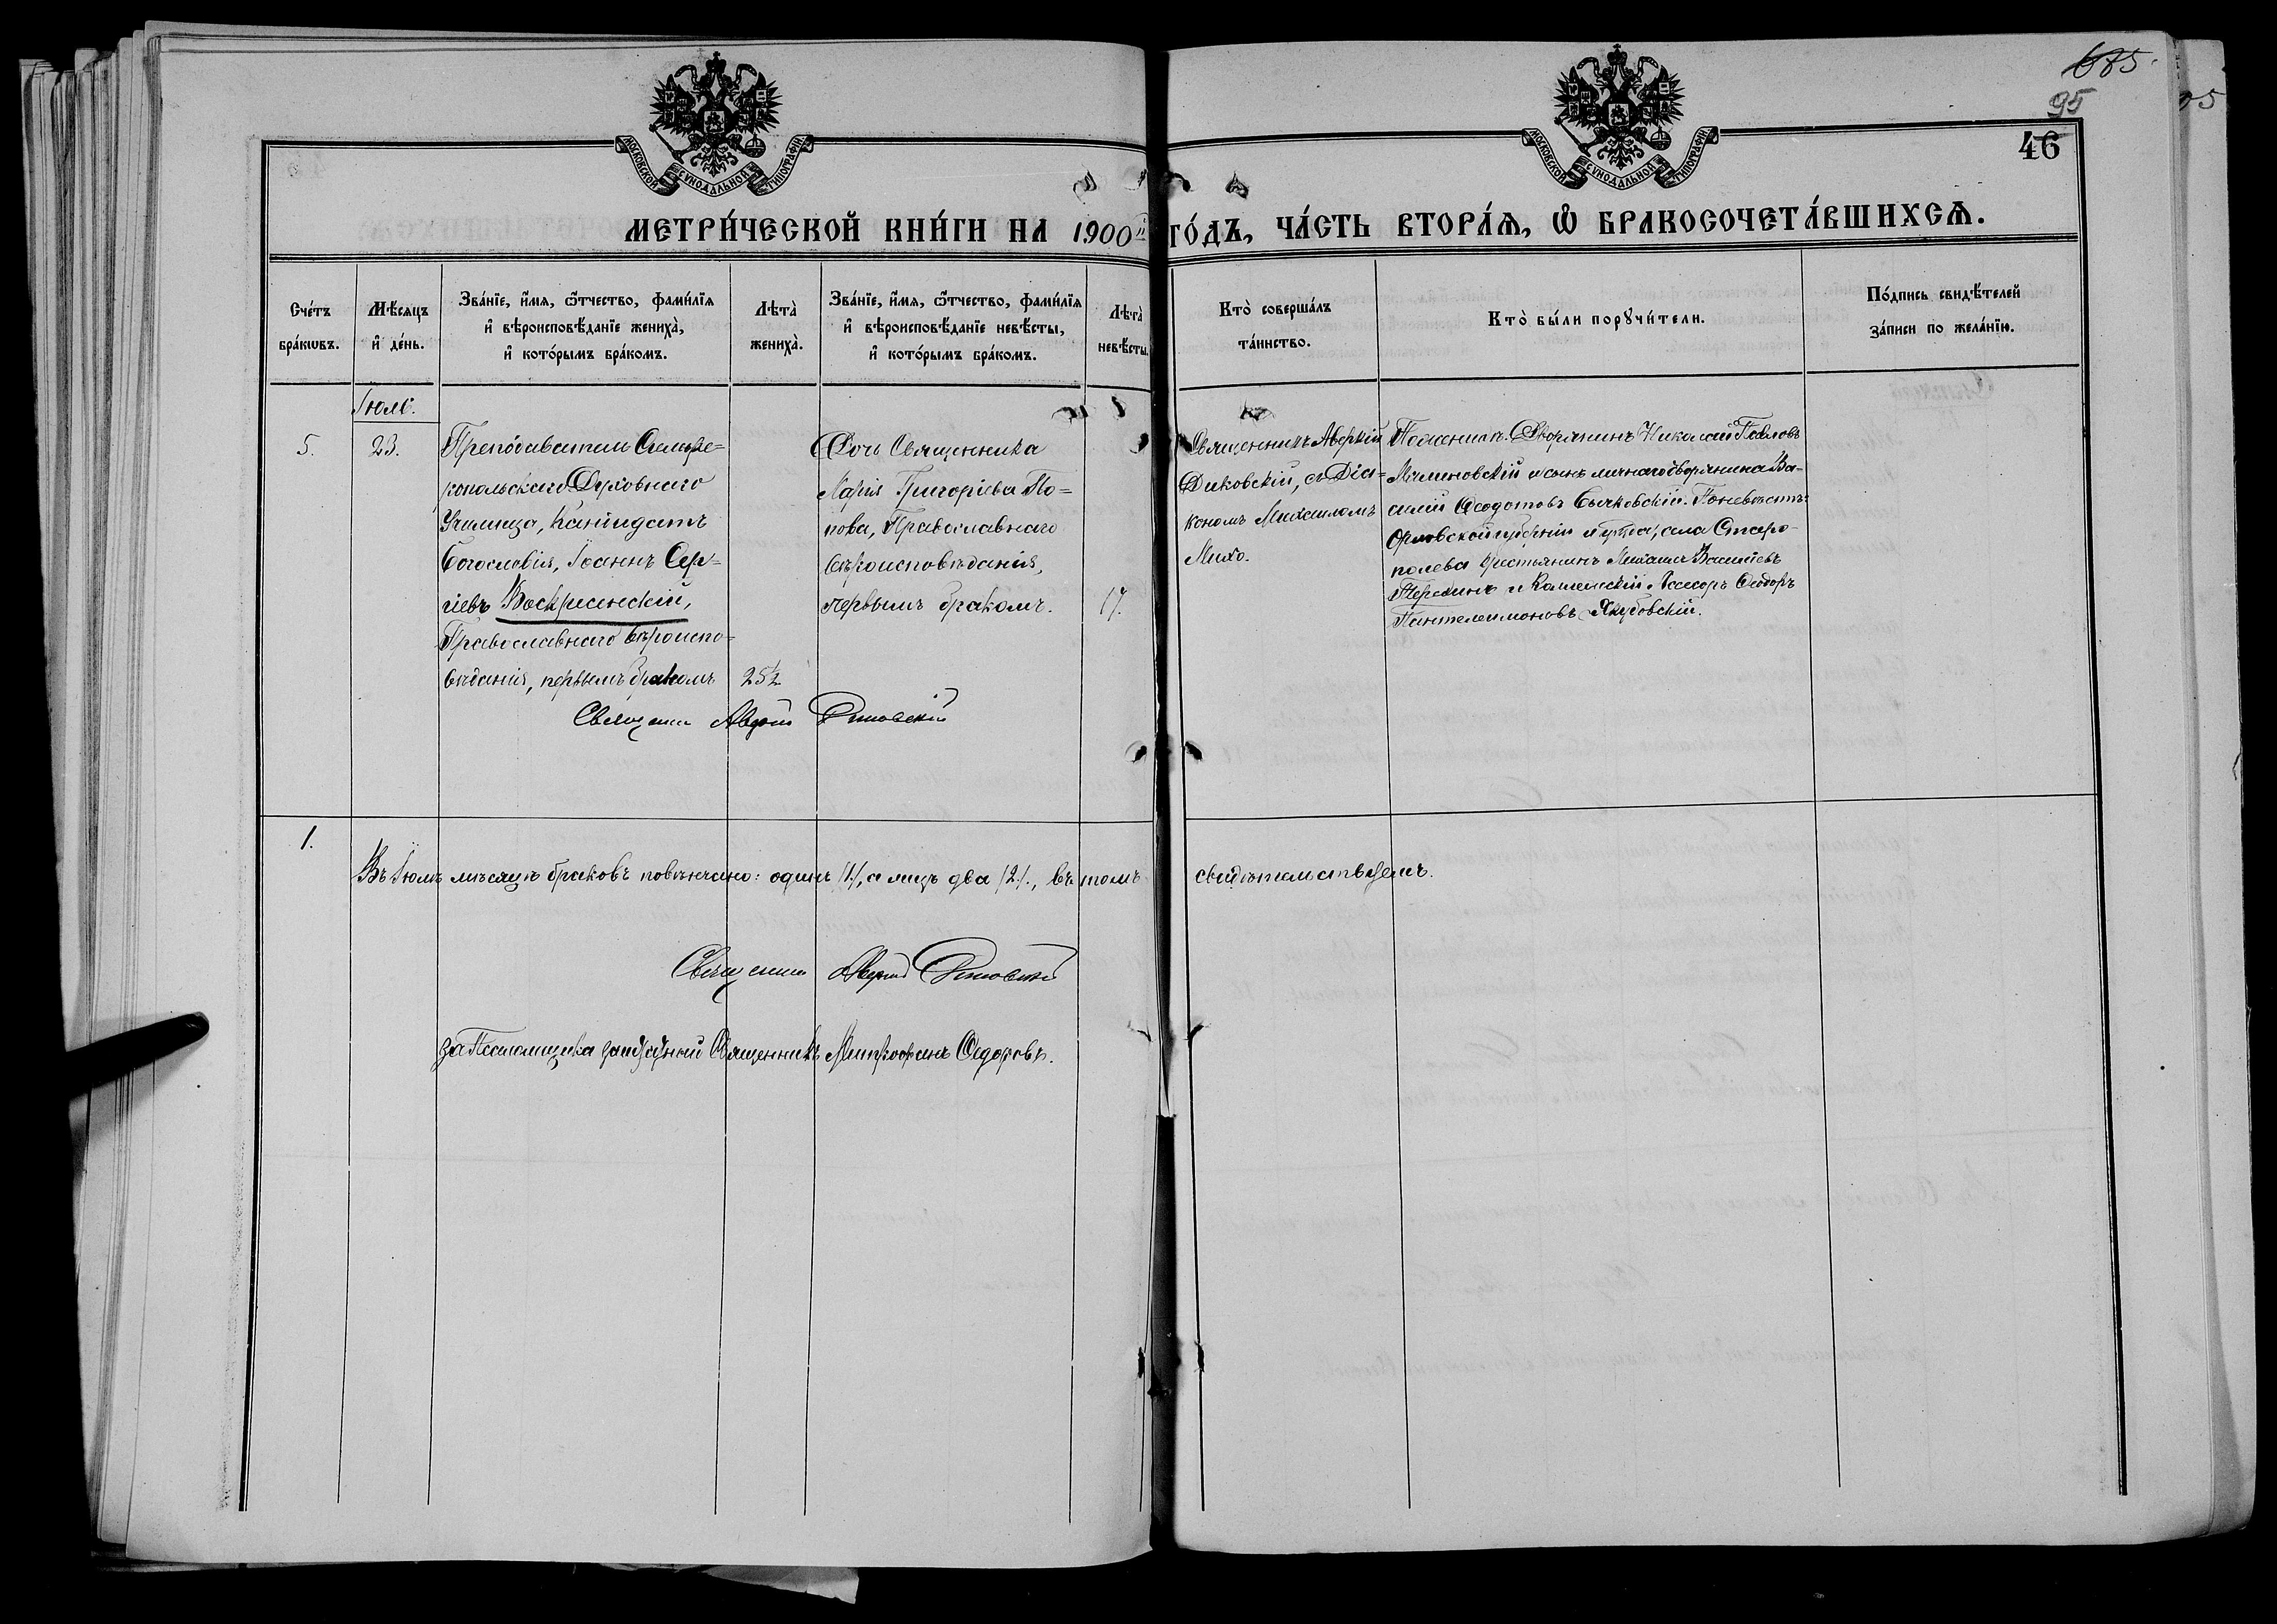 685.
95
46
МОСКОВСКОЙ СѴНОДАЛЬНОЙ ТИПОГРАФІИ
МОСКОВСКОЙ СѴНОДАЛЬНОЙ ТИПОГРАФІИ
МЕТРИ́ЧЕСКОЙ КНИ́ГИ НА 1900й ГО́ДЪ, ЧА́СТЬ ВТОРА́Ѧ, Ѽ БРАКОСОЧЕТА́ВШИХСѦ.
Сче́тъ бра́кωвъ.
Мѣ́сяцъ и҆ де́нь.
Зва́нїе, и҆́мя, ѻ҆́тчество, фами́лїя
и҆ вѣроисповѣ́данїе жениха̀,
и҆ кото́рымъ бра́комъ.
Лѣта̀ жениха̀.
Зва́нїе, и҆́мя, ѻ҆́тчество, фами́лїя
и҆ вѣроисповѣ́данїе невѣ́сты,
и҆ кото́рымъ бра́комъ.
Лѣта̀ невѣ́сты.
Кто̀ соверша́лъ
та́инство.
Кто̀ бы́ли порꙋчи́тели.
По́дпись свидѣ́телей
за́писи по жела́нїю.
Іюль.
5.
23.
Преподаватель Симфе-
ропольскаго Духовнаго
Училища, Кандидатъ
Богословія, Іоаннъ Сер-
гіевъ Воскресенскій,
Православнаго вѣроиспо-
вѣданія, первымъ бракомъ
25½
Дочь Священника
Марія Григоріева По-
пова, Православнаго
вѣроисповѣданія,
первымъ бракомъ.
17.
Священникъ Аверкій
Диковскій, съ Діа-
кономъ Михаиломъ
Михо.
По женихѣ: Дворянинъ Николай Павловъ
Малиновскій и сынъ личнаго дворянина Ва-
силій Ѳеодотовъ Сычковскій. По невѣстѣ:
Орловской губерніи и уѣзда, села Старо-
полева крестьянинъ Михаилъ Васильевъ
и Ѳеодоръ
Пантелеимоновъ Якубовскій.
Священникъ Аверкій Диковскій
1.
Въ Іюлѣ мѣсяцѣ браковъ повѣнчано: одинъ /1/, а лицъ два /2/., въ томъ свидѣтельствуемъ.
Священникъ Аверкій Диковскій
За Псаломщика заштатный Священникъ Митрофанъ Ѳедоровъ.